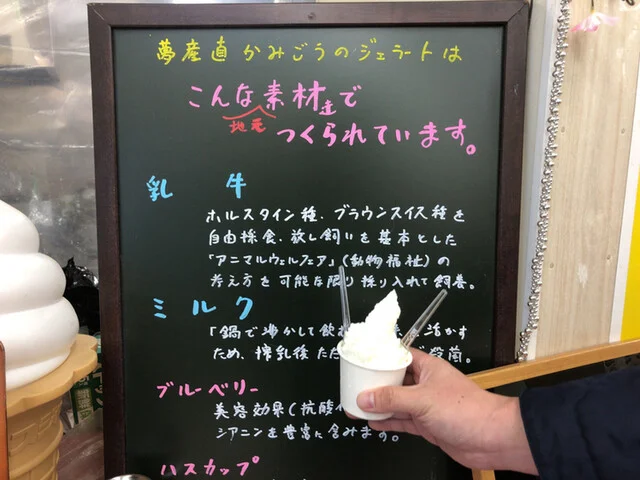 夢産直かみごうのジェラートは
こんな地元素材達で
つくられています。
乳牛
ホルスタイン種、ブラウンスイス種を
自由採食、放し飼いを基本とした
「アニマルウェルフェア」(動物福祉)の
考え方を可能な限り採り入れて飼養。
ミルク
「鍋で沸かして飲む
を活かす
ため、搾乳後ただ
殺菌。
ブルーベリー
美容効果(抗酸
シアニンを豊富に含みます。
ハスカップ